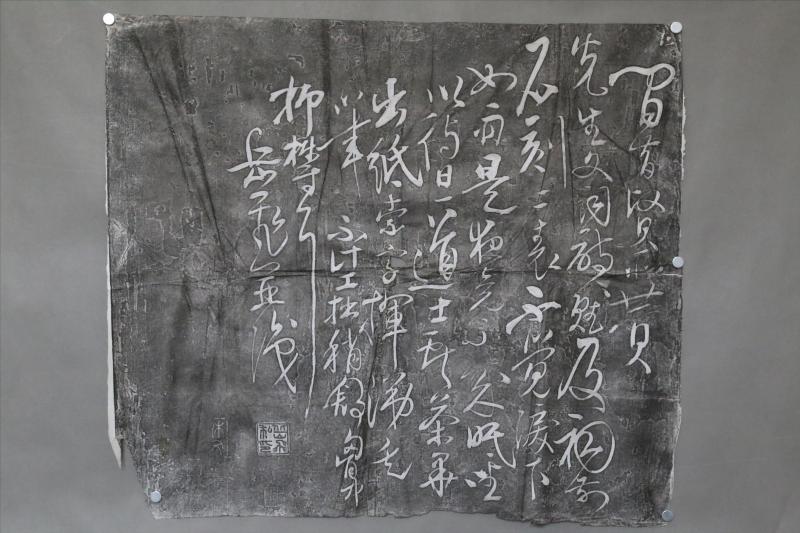 間昔賢所贊
先生文詞詩賦及祠前
石刻二表不覺淚下
如雨是夜竟不成眠坐
以待旦道士獻茶畢
出紙索字揮涕走
筆不計工拙稍舒胸
中抑鬱耳
岳飛並識